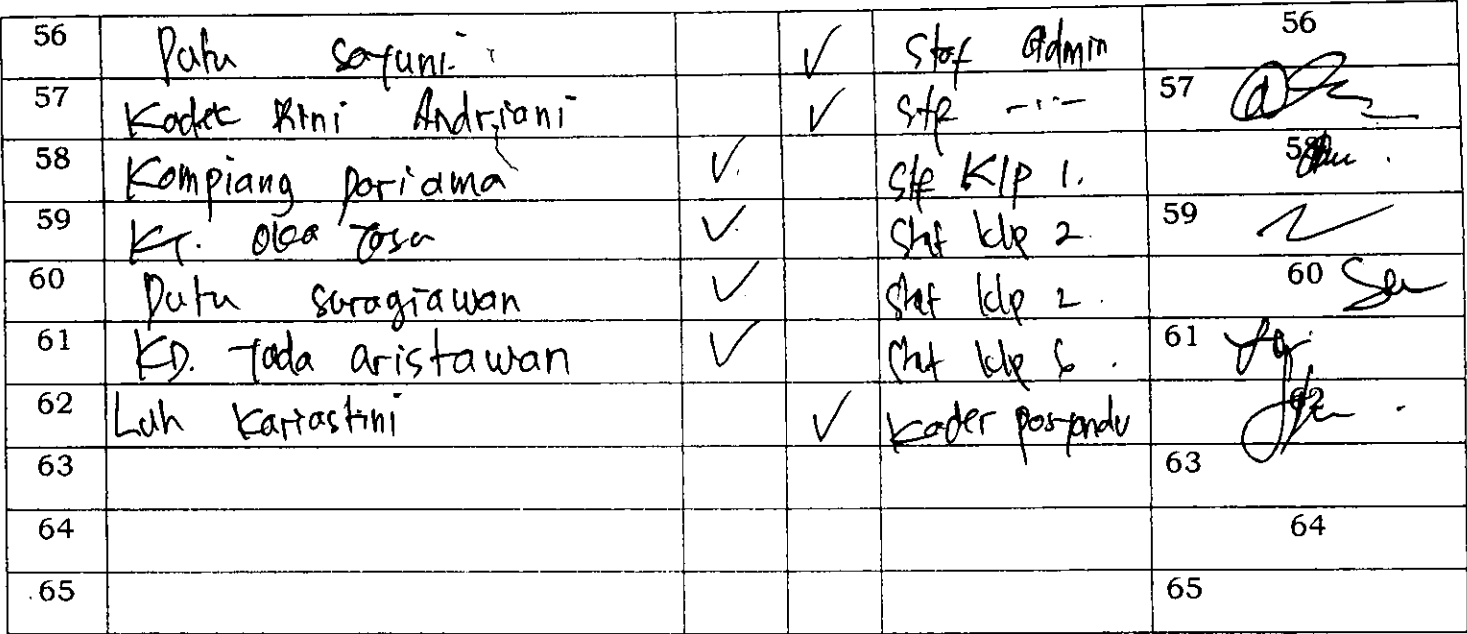 56 Putu Sayuni ✓ Staf Admin 56
57 Kadek Rini Andriani ✓ Stf -"- 57
58 Kompiang Pariama ✓ Stf Klp 1. 58
59 Kt. Oka Yosa ✓ Staf klp 2. 59
60 Putu suragiawan ✓ Staf klp 2. 60
61 KD. Yoda aristawan ✓ Staf klp 61
62 Luh Kariastini ✓ Kader posyandu 62
63 63
64 64
65 65